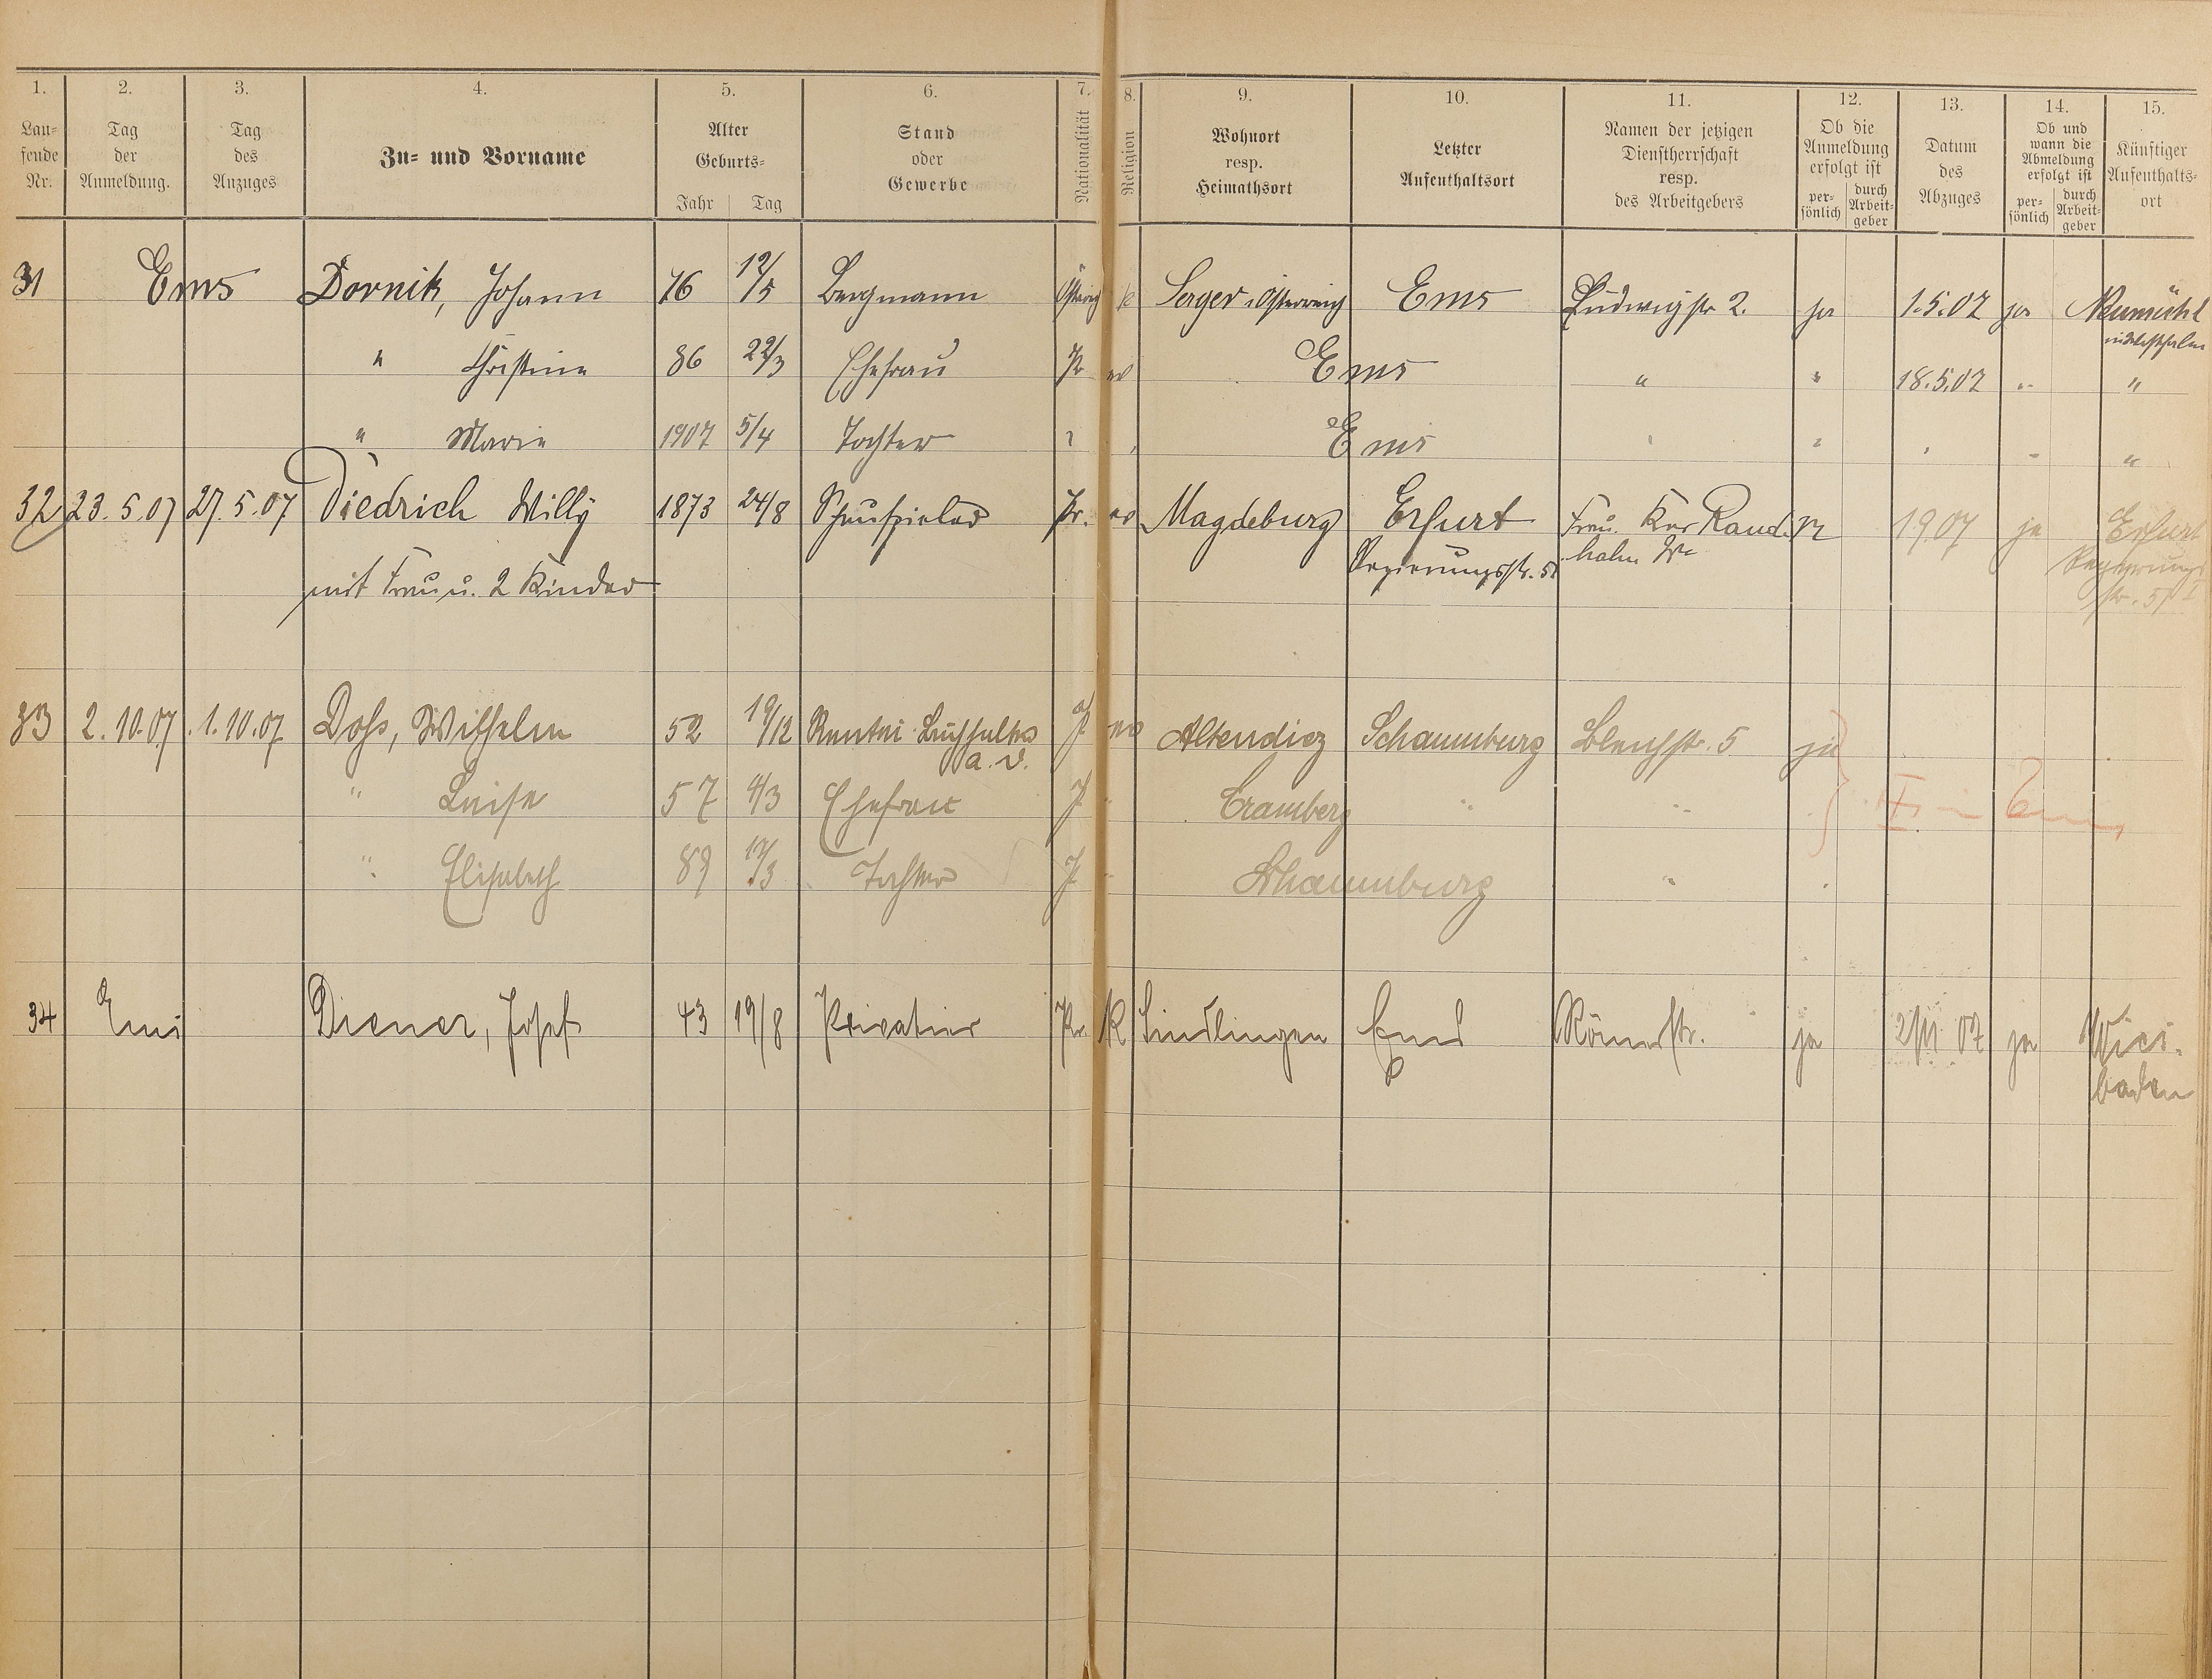 1. 2. 3. 4. 5. 6. 7. 8. 9. 10. 11. 12. 13. 14. 15.
Lau=
fende
Nr.
Tag
der
Anmeldung.
Tag
des
Anzuges
Zu= und Vorname
Alter
Geburts=
Jahr Tag
Stand
oder
Gewerbe
Nationalität
Religion
Wohnort
resp.
Heimathsort
Letzter
Aufenthaltsort
Namen der jetzigen
Dienstherrschaft
resp.
des Arbeitgebers
Ob die
Anmeldung
erfolgt ist
per=
sönlich
durch
Arbeit=
geber
Datum
des
Abzuges
Ob und
wann die
Abmeldung
erfolgt ist
per=
sönlich
durch
Arbeit=
geber
Künftiger
Aufenthalts=
ort
31 Ems Dornik, Johann 76 12/5 Bergmann k Ems Ludwigstr 2. ja 1.5.07 ja Neumühl
" Christine 86 22/3 Ehefrau Pr ev Ems " " 18.5.07 " "
" Marie 1907 5/4 Tochter Ems "
32 23.5.07 27.5.07 Diedrich Willy 1873 24/8 Schauspieler Pr. ev Magdeburg Erfurt Frau 1907 ja Erfurt
mit Frau u. 2 Kinder Regierungsstr. 51 Regierungs
str. 51 I
33 2.10.07 1.10.07 Dohs, Wilhelm 52 19/12 Rentei-Buchhalter P ev Altendiez Schaumburg Bleichstr. 5 ja
a. D.
" Luise 57 4/3 Ehefrau P " Cramberg " "
" Elisabeth 89 17/3 Tochter P " Schaumburg "
34 Ems Diener, Josef 43 19/8 Privatier Pr. K Sindlingen Ems Römerstr. ja 2/11 07 ja Wies-
baden